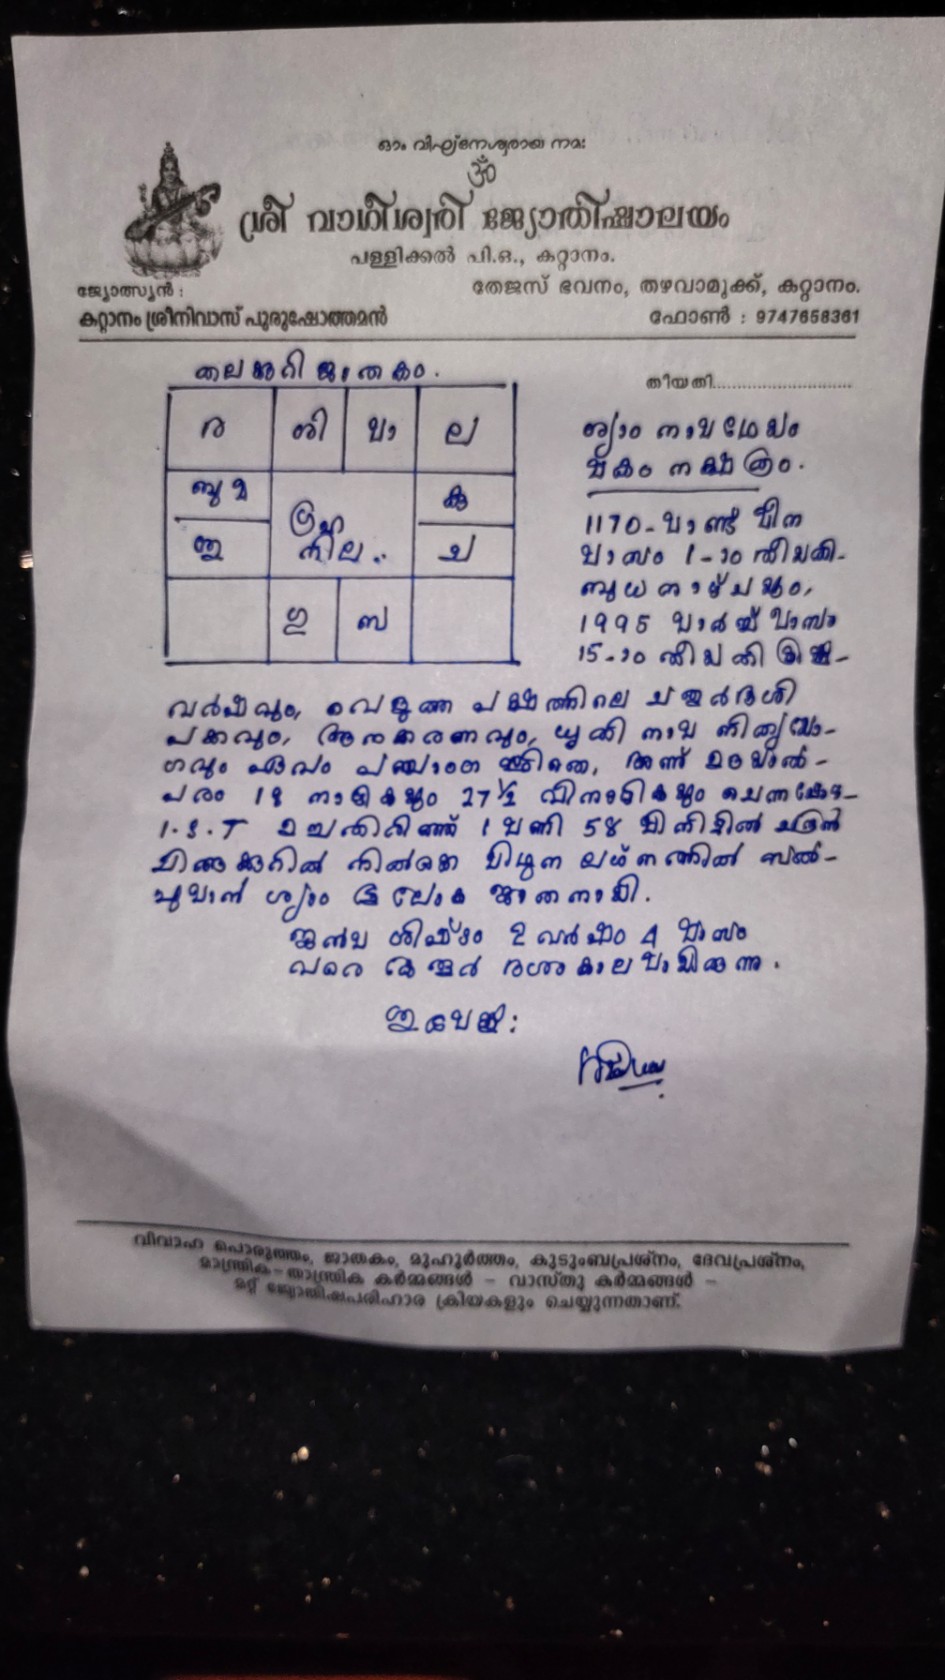 ഓം വിഘ്നേശ്വരായ നമഃ
ॐ
ശ്രീ വാഗീശ്വരി ജ്യോതിഷാലയം
പള്ളിക്കൽ പി.ഒ., കറ്റാനം.
ജ്യോത്സ്യൻ :
കറ്റാനം ശ്രീനിവാസ് പുരുഷോത്തമൻ
തേജസ് ഭവനം, തഴവാമുക്ക്, കറ്റാനം.
ഫോൺ : 9747658361
തലക്കുറി ജാതകം.
തീയതി............................
ര ശി മാ ല
ബു മ
കു
ഗ്രഹ
നില..
ഇ
ച
ഗു സ
ശ്യാം നാമധേയം
മകം നക്ഷത്രം.
1170-മാണ്ട് മീന
മാസം 1-ാം തീയതി-
ബുധനാഴ്ചയും,
1995 മാർച്ച് മാസം
15-ാം തീയതി
വർഷവും, വെളുത്ത പക്ഷത്തിലെ ചതുർദ്ദശി
പക്കവും, കരണവും, ധൃതി നാമ നിത്യയോ-
ഗവും പഞ്ചാംഗ അന്ന്
പരം 18 നാഴികയും 27½ വിനാഴികയും
I.S.T 1 മണി 58 മിനിട്ടിൽ ചന്ദ്രൻ
ചിങ്ങക്കൂറിൽ നിൽക്കെ മിഥുന ലഗ്നത്തിൽ സൽ-
പുമാൻ ശ്യാം ഭൂലോക ജാതനായി.
ജന്മ ശിഷ്ടം 2 വർഷം 4 മാസം
വരെ കേതുർ ദശാകാലമായിരുന്നു.
വിവാഹ പൊരുത്തം, ജാതകം, മുഹൂർത്തം, കുടുംബപ്രശ്നം, ദേവപ്രശ്നം,
മാന്ത്രിക-താന്ത്രിക കർമ്മങ്ങൾ - വാസ്തു കർമ്മങ്ങൾ -
മറ്റ് ജ്യോതിഷപരിഹാര ക്രിയകളും ചെയ്യുന്നതാണ്.